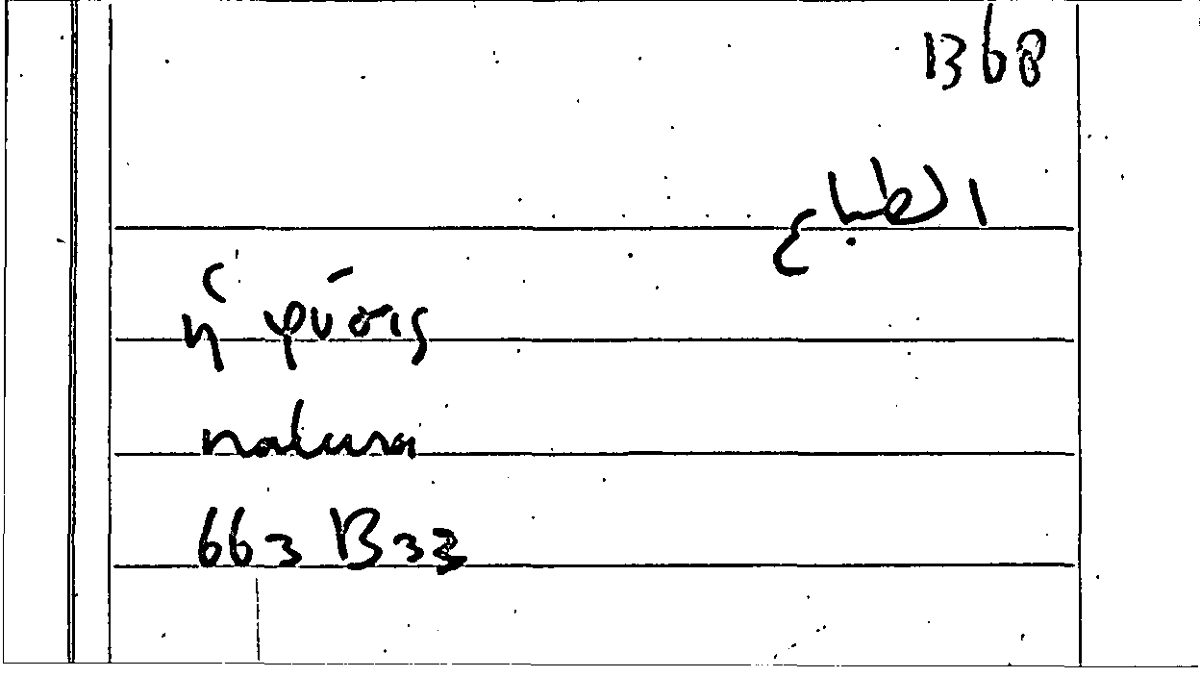 1368
الطباع
ἡ φύσις
natura
663 B 33